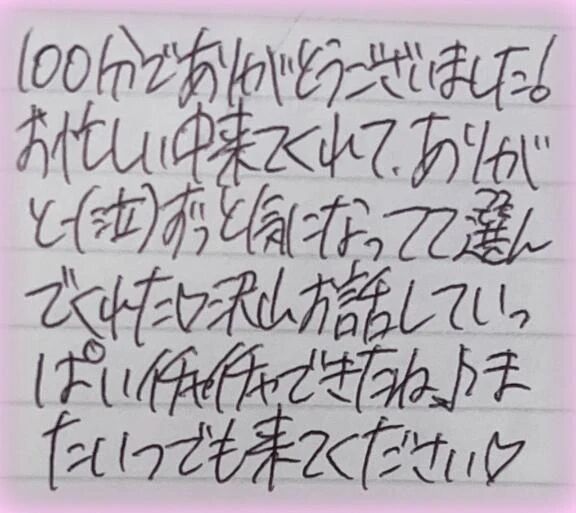 100分でありがとうございました!
お忙しい中来てくれて、ありが
と~(泣)ずっと気になってて選ん
でくれた♡沢山お話していっ
ぱいイチャイチャできたね♪ま
たいつでも来てください♡